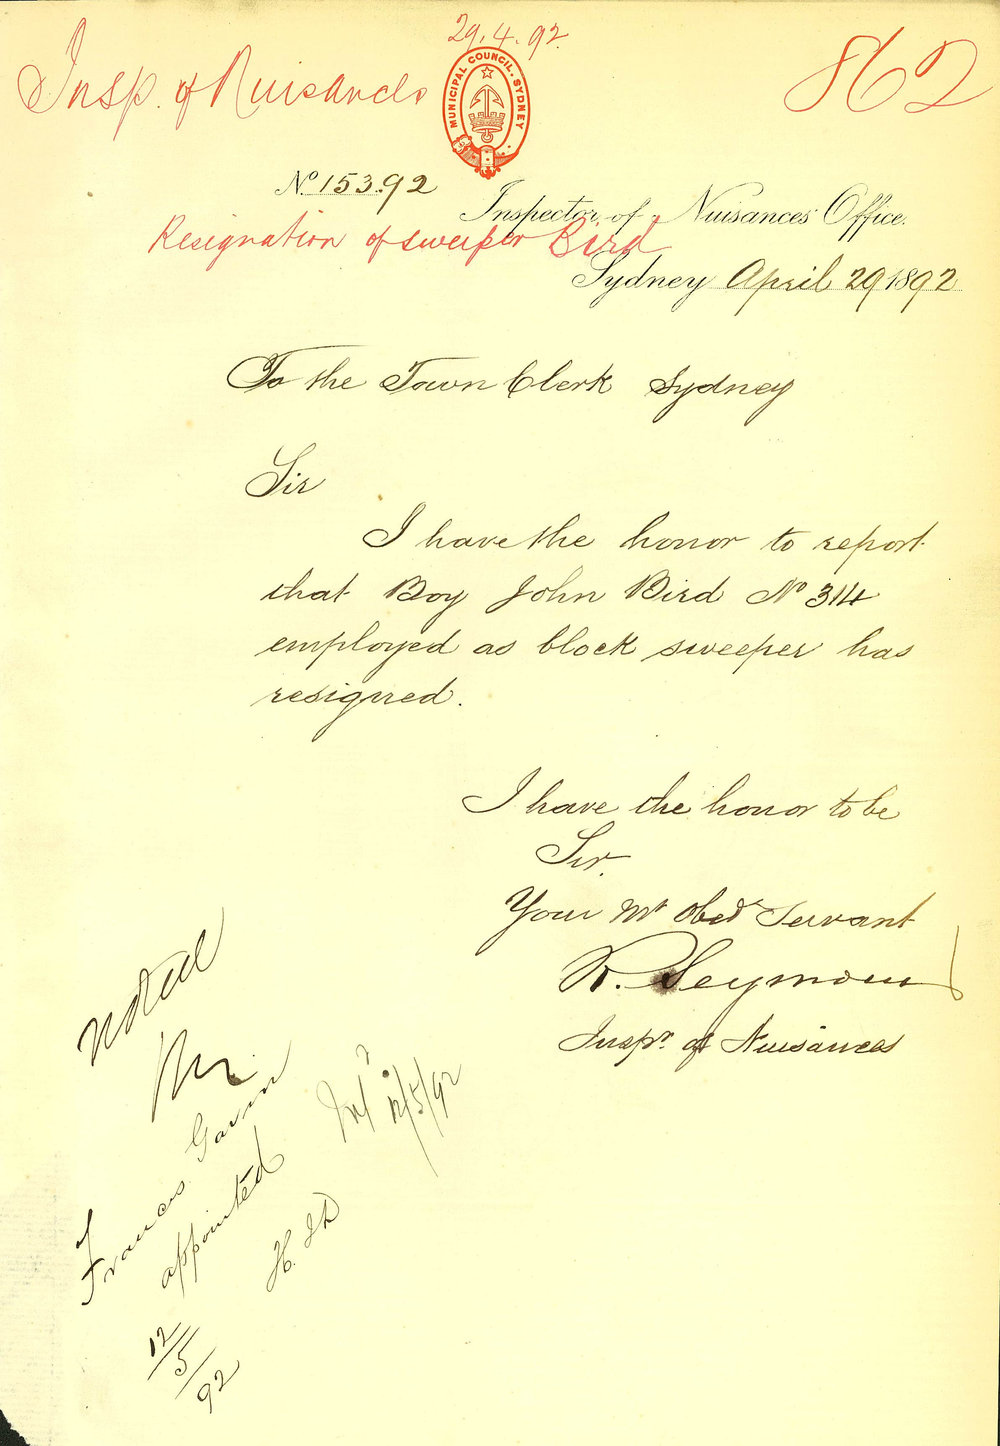 29.4.92.
Insp. of Nuisances
862
MUNICIPAL COUNCIL. SYDNEY
No. 153.92
Inspector of Nuisances Office.
Resignation of sweeper Bird
Sydney April 29 1892
To the Town Clerk Sydney
Sir
I have the honor to report
that Boy John Bird No 314
employed as block sweeper has
resigned.
I have the honor to be
Sir.
Your Mt Obedt Servant
R. Seymour
Inspr. of Nuisances
Noted
Francis Gavin
appointed
12/5/92
12/5/92